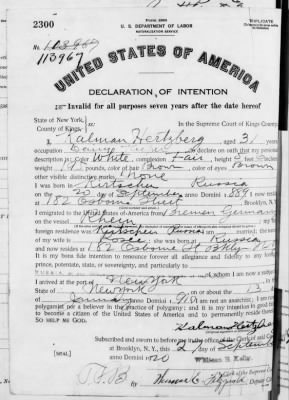 Form 2203
2300
U. S. DEPARTMENT OF LABOR
NATURALIZATION SERVICE
TRIPLICATE
No. 113967
113967
UNITED STATES OF AMERICA
DECLARATION OF INTENTION
Invalid for all purposes seven years after the date hereof
State of New York,
In the Supreme Court of Kings County.
County of Kings
I, Kalman Hertzberg aged 31 years
occupation do declare on oath that my personal
description is: Color White, complexion Fair, height 5 feet inches
weight pounds, color of hair Brown, color of eyes Brown
other visible distinctive marks None
I was born in Russia
on the 20 day of September anno Domini 1889 now reside
at 182 Osborne Street, Brooklyn, N.Y.
I emigrated to the United States of America from Bremen Germany
on the vessel Rhein
foreign residence was Russia
of my wife is she was born at Russia
and now resides at 182 Osborne St
It is my bona fide intention to renounce forever all allegiance and fidelity to any foreign
prince, potentate, state, or sovereignty, and particularly to
RUSSIA of whom I am now a subject
I arrived at the port of New York
State of New York on or about the 13
of January anno Domini; I am not an anarchist; I am not a
polygamist nor a believer in the practice of polygamy; and it is my intention in good faith
to become a citizen of the United States of America and to permanently reside therein:
SO HELP ME GOD.
Kalman Hertzberg
Subscribed and sworn to before me in the office of the Clerk of said Court
at Brooklyn, N. Y., this 2 day of September
anno Domini 1920
[SEAL]
William E. Kelly
Clerk of the Supreme Court
By Deputy Clerk